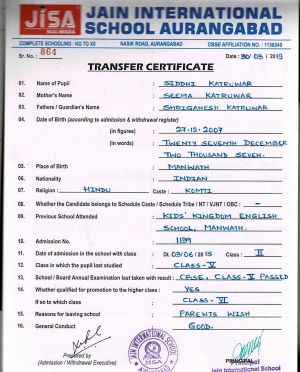 JISA
MALWADA
JAIN INTERNATIONAL
SCHOOL AURANGABAD
COMPLETE SCHOOLING : KG TO XII NASIK ROAD, AURANGABAD CBSE AFFILIATION NO. : 1130240
Sr. No. : 864 Date : 30/03/2019
TRANSFER CERTIFICATE
01. Name of Pupil : SIDDHI KATRUWAR
02. Mother's Name : SEEMA KATRUWAR
03. Fathers / Guardian's Name : SHRIGANESH KATRUWAR
04. Date of Birth (according to admission & withdrawal register)
(in figures) : 27.12.2007
(in words) : TWENTY SEVENTH DECEMBER
TWO THOUSAND SEVEN.
05. Place of Birth : MANWATH
06. Nationality : INDIAN
07. Religion : HINDU Caste : KOMTI
08. Whether the Candidate belongs to Schedule Caste / Schedule Tribe / NT / VJNT / OBC : –
09. Previous School Attended : KIDS' KINGDOM ENGLISH
SCHOOL, MANWATH.
10. Admission No. : 1189
11. Date of admission in the school with class : Dt. 03/06/2015 Class : II
12. Class in which the pupil last studied : CLASS-V
13. School / Board Annual Examination last taken with result : CBSE, CLASS-V PASSED
14. Whether qualified for promotion to the higher class : YES
If so to which class : CLASS-VI
15. Reasons for leaving school : PARENTS WISH
16. General Conduct : GOOD.
Prepared by
(Admission / Withdrawal Executive)
JAIN INTERNATIONAL SCHOOL
JISA
PRINCIPAL
Jain International School